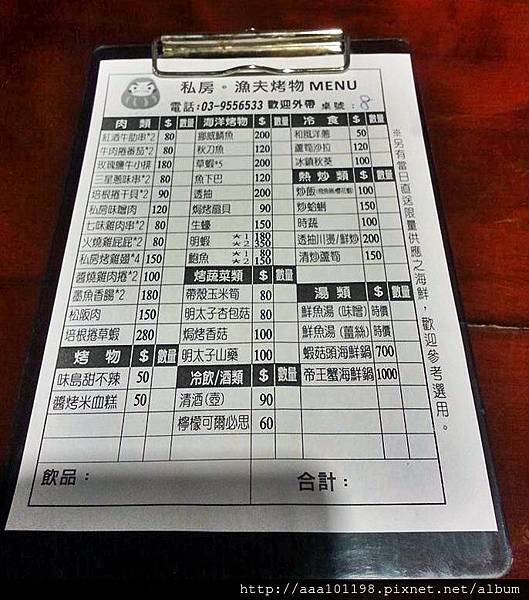 私房。漁夫烤物 MENU
電話:03-9556533 歡迎外帶 桌號:8
肉類 $ 數量
紅酒牛肋串*2 80
牛肉捲番茄*2 80
玫瑰鹽牛小排 180
三星蔥味串*2 80
培根捲干貝*2 90
私房味噌肉 120
七味雞肉串*2 80
火燒雞屁屁*2 80
私房烤雞翅*4 150
醬燒雞肉捲*2 100
墨魚香腸*2 180
松阪肉 150
培根捲草蝦 280
烤物 $ 數量
味島甜不辣 50
醬烤米血糕 50
海洋烤物 $ 數量
挪威鯖魚 200
秋刀魚 120
草蝦*5 200
魚下巴 120
透抽 200
焗烤扇貝 90
生蠔 150
明蝦 ★1 180 ★2 350
鮑魚 ★1 80 ★2 150
烤蔬菜類 $ 數量
帶殼玉米筍 80
明太子杏包菇 80
焗烤香菇 100
明太子山藥 100
冷飲/酒類 $ 數量
清酒(壺) 90
檸檬可爾必思 60
冷食 $ 數量
和風洋蔥 50
蘆筍沙拉 120
冰鎮秋葵 100
熱炒類 $ 數量
炒飯 100
炒蛤蜊 150
時蔬 100
透抽川燙/鮮炒 200
清炒蘆筍 150
湯類 $ 數量
鮮魚湯(味噌) 時價
鮮魚湯(薑絲) 時價
蝦菇頭海鮮鍋 700
帝王蟹海鮮鍋 1000
※另有當日直送限量供應之海鮮，歡迎參考選用。
飲品：
合計：
http://aaa101198.pixnet.net/album